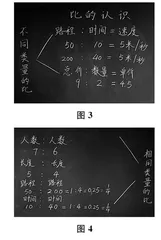 比的认识
不同类量的比
路程：时间 = 速度
50 : 10 = 5米/秒
200 : 40 = 5米/秒
总价：数量 = 单价
9 : 2 = 4.5
图 3
人数：人数
7 : 6
长度：长度
5 : 4
路程：路程
50 : 200 = 1:4 = 0.25 = 1/4
时间：时间
10 : 40 = 1:4 = 0.25 = 1/4
相同类量的比
图 4